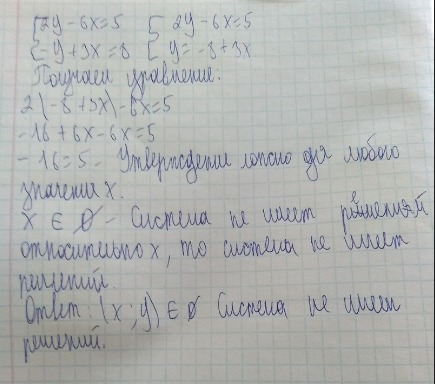 {2y-6x=5 {2y-6x=5
{-y+3x=8 {y=-8+3x
Получаем уравнение:
2(-8+3x)-6x=5
-16+6x-6x=5
-16=5- Утверждение ложно для любого
значение x.
x ∈ ∅ - Система не имеет решений
относительно x, то система не имеет
решений.
Ответ: (x; y) ∈ ∅ Система не имеет
решений.